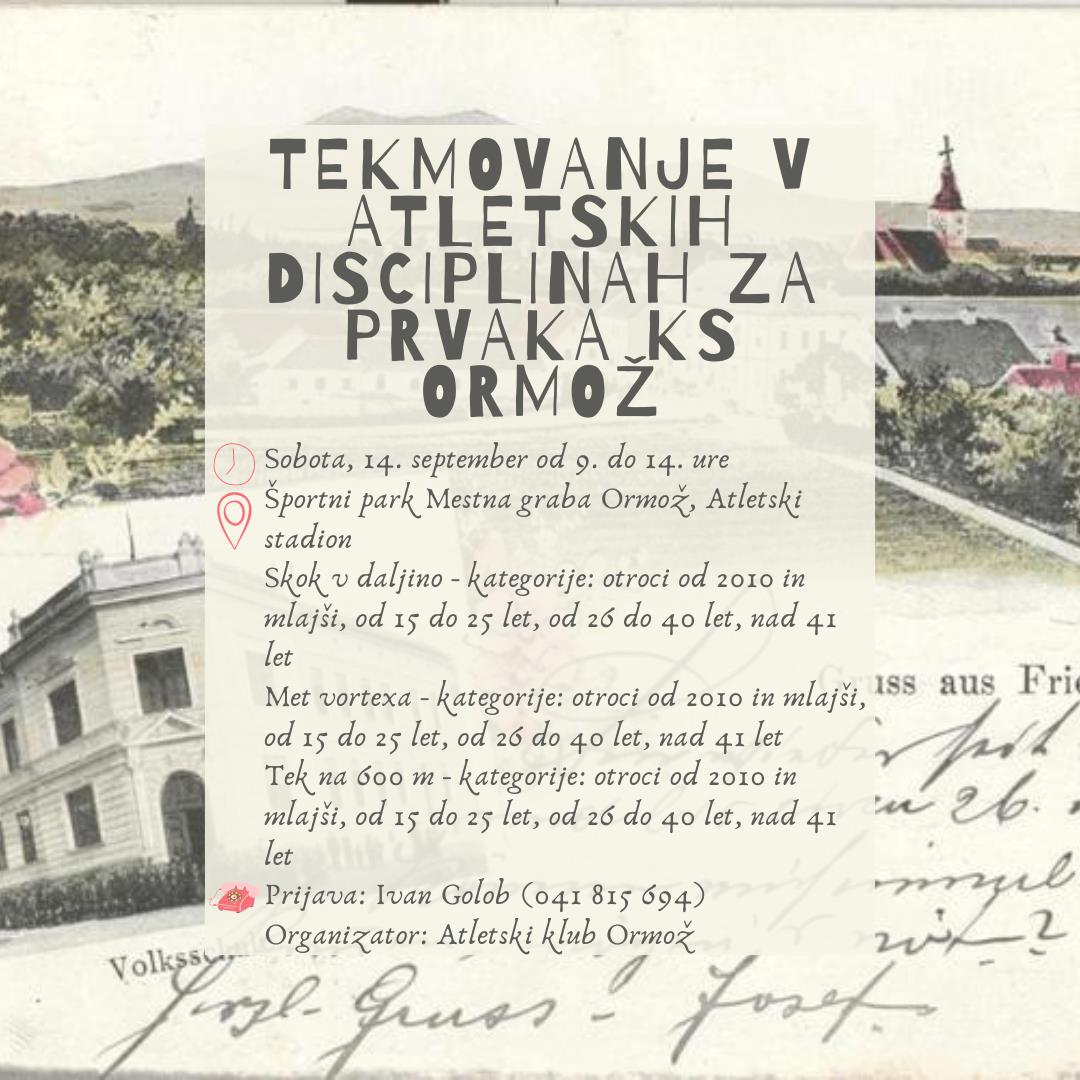 TEKMOVANJE V
ATLETSKIH
DISCIPLINAH ZA
PRVAKA KS
ORMOŽ
Sobota, 14. september od 9. do 14. ure
Športni park Mestna graba Ormož, Atletski
stadion
Skok v daljino - kategorije: otroci od 2010 in
mlajši, od 15 do 25 let, od 26 do 40 let, nad 41
let
Met vortexa - kategorije: otroci od 2010 in mlajši,
od 15 do 25 let, od 26 do 40 let, nad 41 let
Tek na 600 m - kategorije: otroci od 2010 in
mlajši, od 15 do 25 let, od 26 do 40 let, nad 41
let
Prijava: Ivan Golob (041 815 694)
Organizator: Atletski klub Ormož
Gruss aus Frie
26.
Volksschule
Gruss - Josef